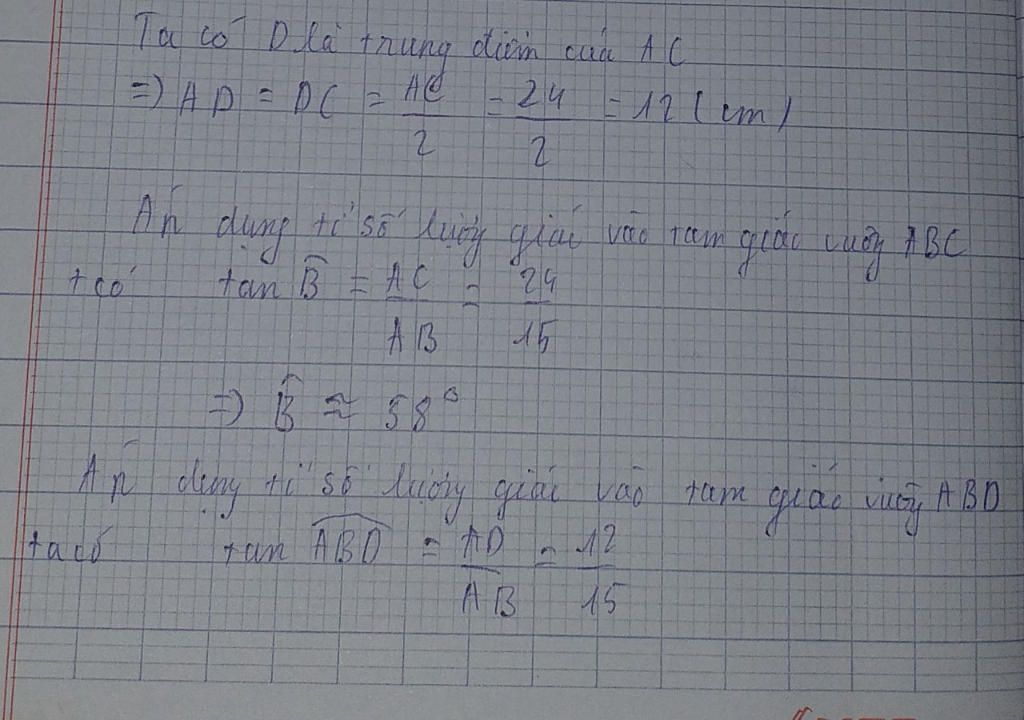 Ta có D là trung điểm của AC
=> AD = DC = AC/2 = 24/2 = 12 (cm)
Áp dụng tỉ số lượng giác vào tam giác vuông ABC
t có tan B̂ = AC/AB = 24/15
=> B̂ ≈ 58°
Áp dụng tỉ số lượng giác vào tam giác vuông ABD
ta có tan ABD = AD/AB = 12/15